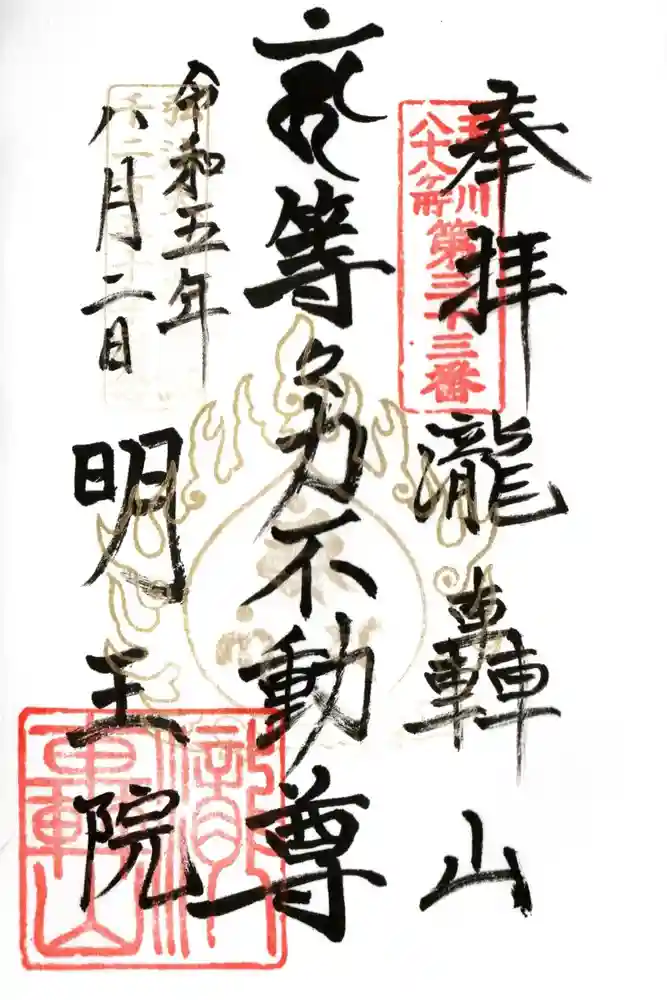 奉拝
瀧轟山
玉川
八十八ヶ所
第三十三番
等々力不動尊
令和五年
八月二日
明王院
瀧
轟山